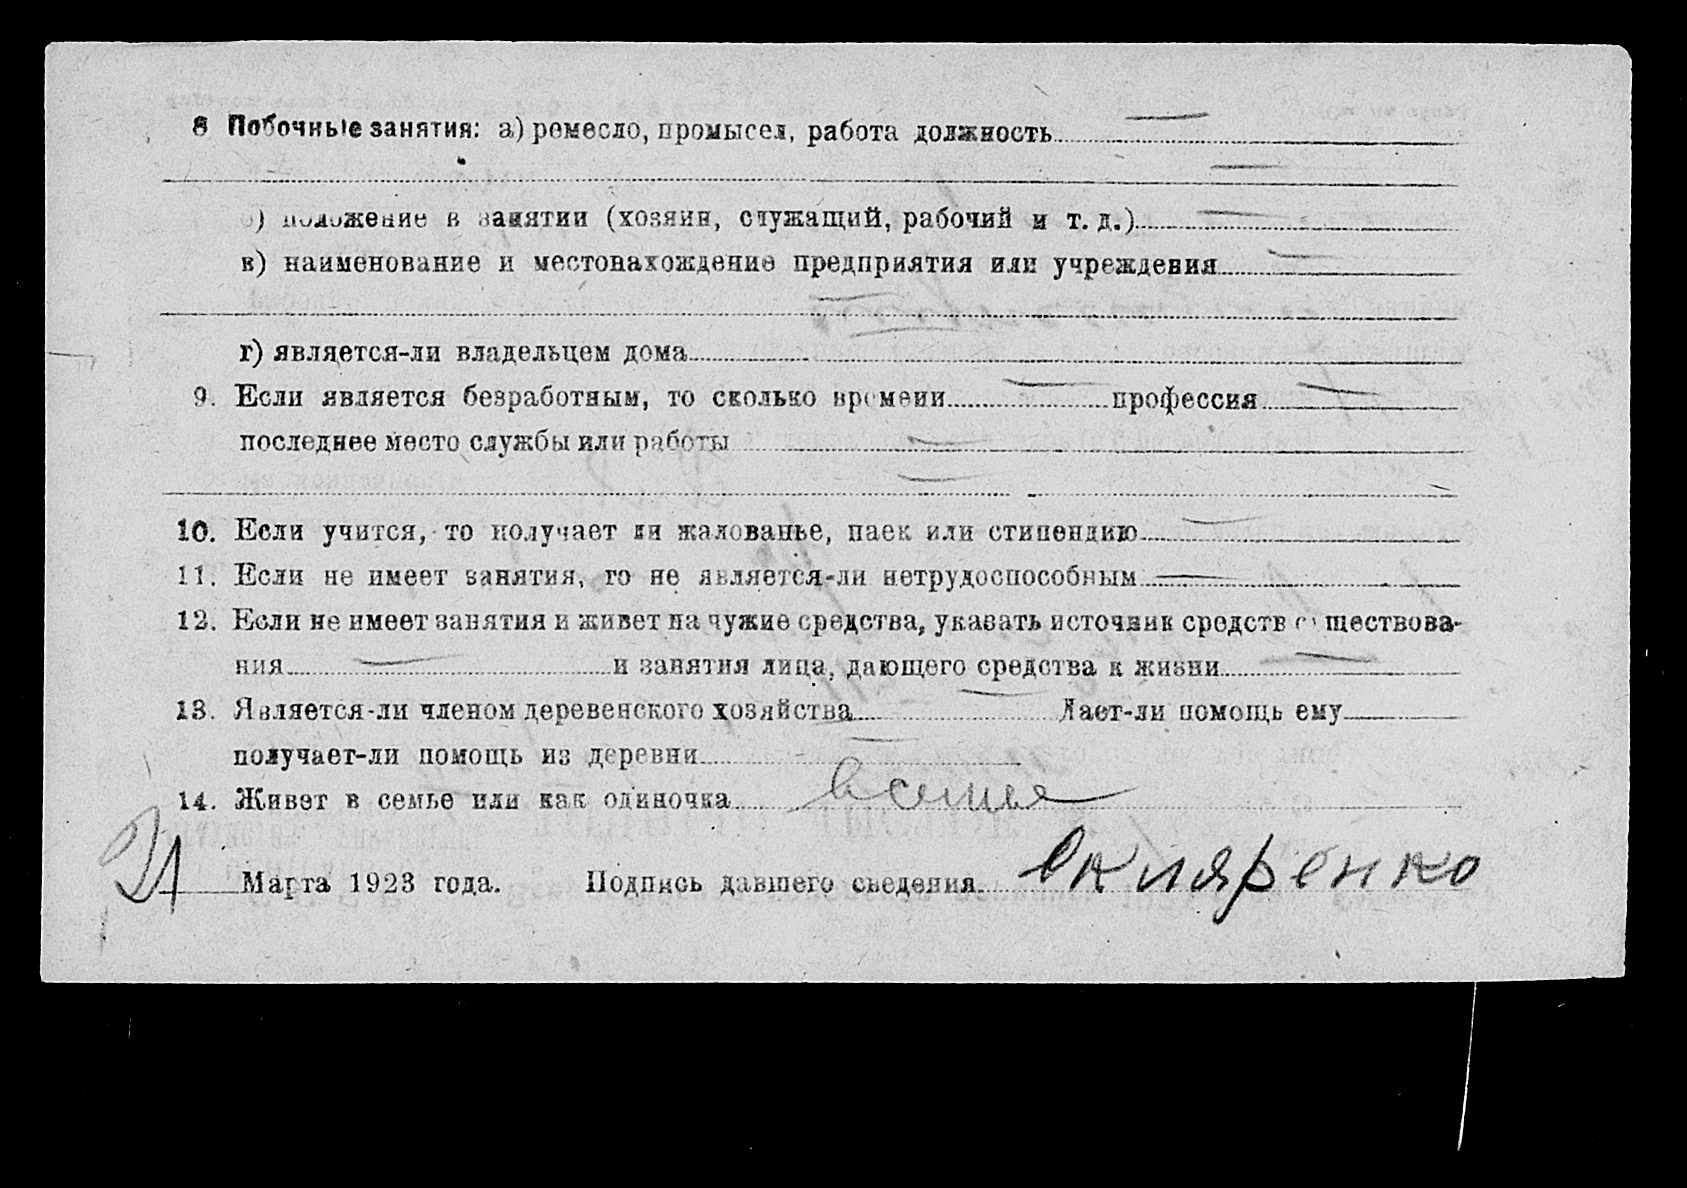 8 Побочные занятия: а) ремесло, промысел, работа должность —
—
б) положение в занятии (хозяин, служащий, рабочий и т. д.) —
в) наименование и местонахождение предприятия или учреждения —
—
г) является-ли владельцем дома
9. Если является безработным, то сколько времени — профессия —
последнее место службы или работы —
—
10. Если учится, то получает ли жалованье, паек или стипендию —
11. Если не имеет занятия, то не является-ли нетрудоспособным —
12. Если не имеет занятия и живет на чужие средства, указать источник средств существова-
ния — и занятия лица, дающего средства к жизни —
13. Является-ли членом деревенского хозяйства — Дает-ли помощь ему
получает-ли помощь из деревни —
14. Живет в семье или как одиночка в семье
21 Марта 1923 года. Подпись давшего сведения. Скляренко